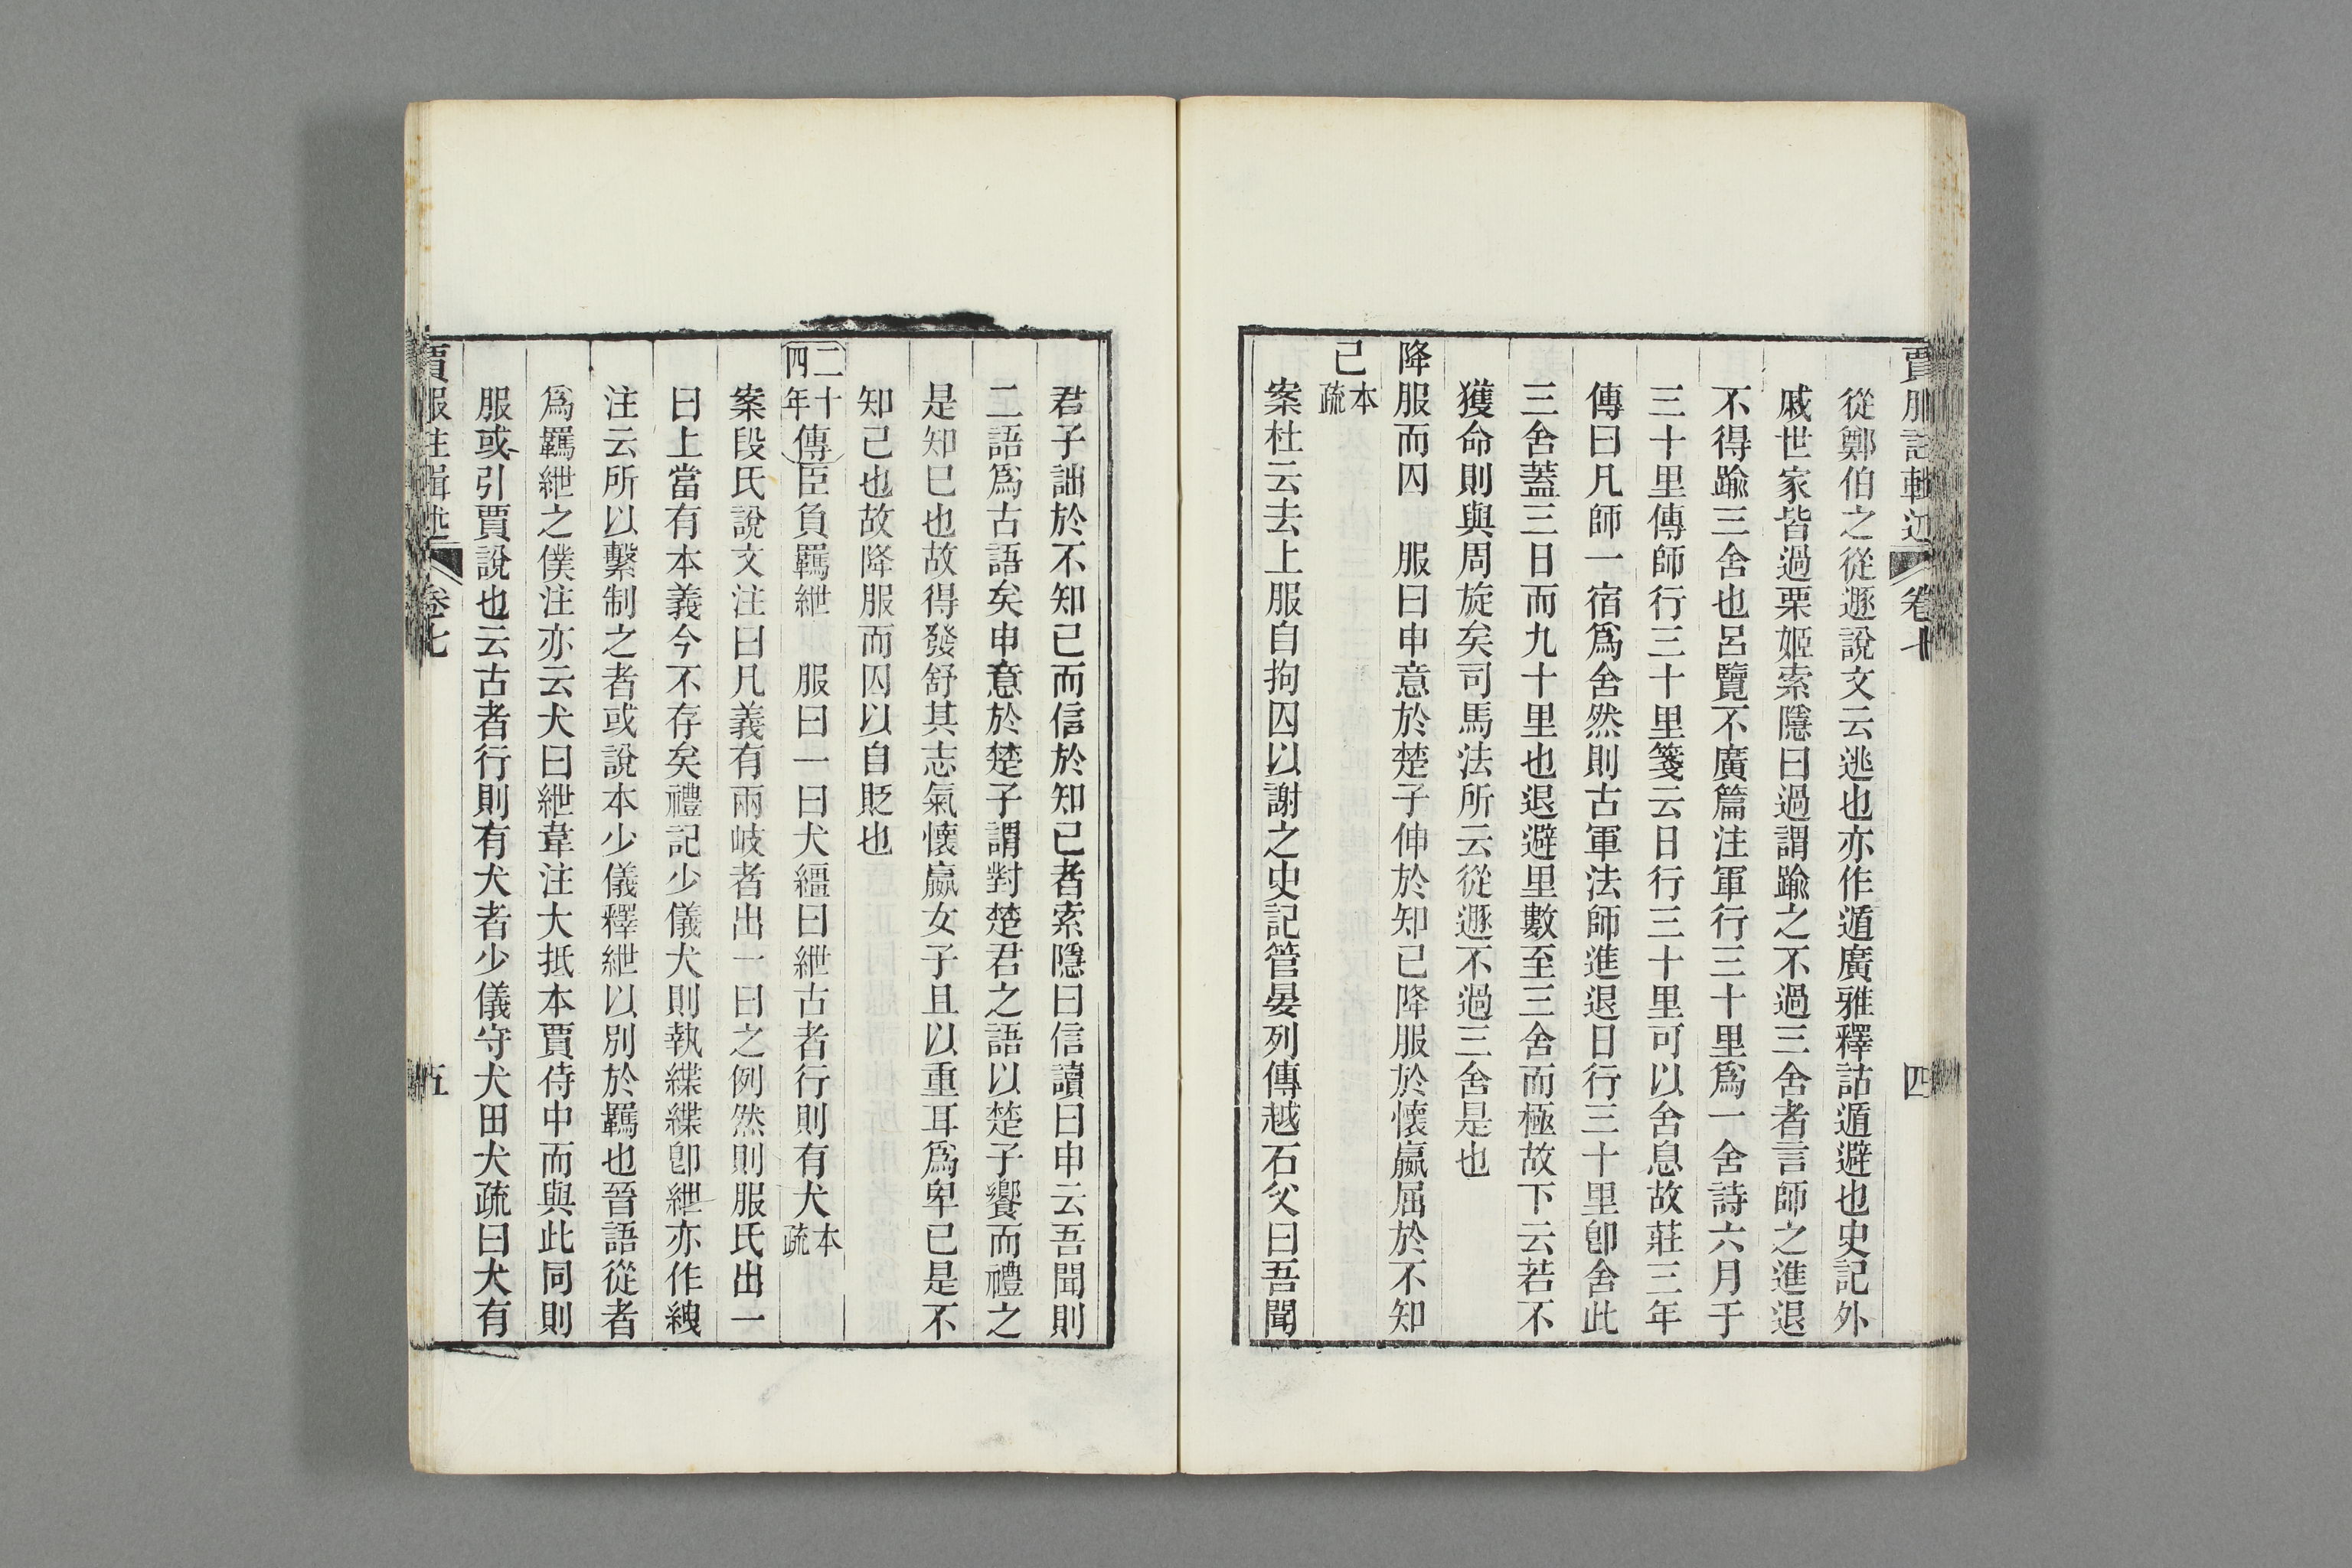 賈服註輯述 卷七 四
從鄭伯之從遯說文云逃也亦作遁廣雅釋詁遁避也史記外
戚世家皆過栗姬索隱曰過謂踰之不過三舍者言師之進退
不得踰三舍也呂覽不廣篇注軍行三十里爲一舍詩六月于
三十里傳師行三十里箋云日行三十里可以舍息故莊三年
傳曰凡師一宿爲舍然則古軍法師進退日行三十里卽舍此
三舍蓋三日而九十里也退避里數至三舍而極故下云若不
獲命則與周旋矣司馬法所云從遯不過三舍是也
降服而囚 服曰申意於楚子伸於知己降服於懷嬴屈於不知
己本疏
案杜云去上服自拘囚以謝之史記管晏列傳越石父曰吾聞
君子詘於不知己而信於知己者索隱曰信讀曰申云吾聞則
二語爲古語矣申意於楚子謂對楚君之語以楚子饗而禮之
是知巳也故得發舒其志氣懷嬴女子且以重耳爲卑已是不
知己也故降服而囚以自貶也
二十四年傳臣負羈紲 服曰一曰犬繮曰紲古者行則有犬本疏
案段氏說文注曰凡義有兩岐者出一曰之例然則服氏出一
曰上當有本義今不存矣禮記少儀犬則執緤緤卽紲亦作絏
注云所以繫制之者或說本少儀釋紲以別於羈也晉語從者
爲羈紲之僕注亦云犬曰紲韋注大抵本賈侍中而與此同則
服或引賈說也云古者行則有犬者少儀守犬田犬疏曰犬有
賈服註輯述 卷七 五